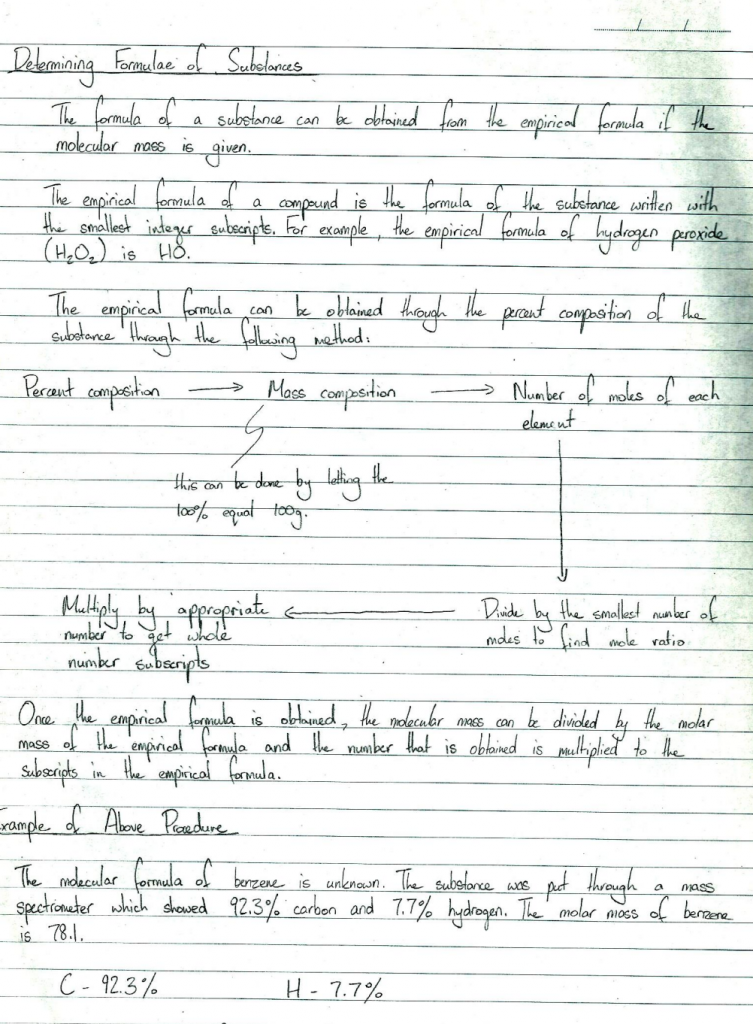 Determining Formulae of Substances
The formula of a substance can be obtained from the empirical formula if the
molecular mass is given.
The empirical formula of a compound is the formula of the substance written with
the smallest integer subscripts. For example, the empirical formula of hydrogen peroxide
(H₂O₂) is HO.
The empirical formula can be obtained through the percent composition of the
substance through the following method:
Percent composition → Mass composition → Number of moles of each
element
this can be done by letting the
100% equal 100g.
Multiply by appropriate ← Divide by the smallest number of
number to get whole moles to find mole ratio
number subscripts
Once the empirical formula is obtained, the molecular mass can be divided by the molar
mass of the empirical formula and the number that is obtained is multiplied to the
subscripts in the empirical formula.
xample of Above Procedure
The molecular formula of benzene is unknown. The substance was put through a mass
spectrometer which showed 92.3% carbon and 7.7% hydrogen. The molar mass of benzene
is 78.1.
C - 92.3% H - 7.7%